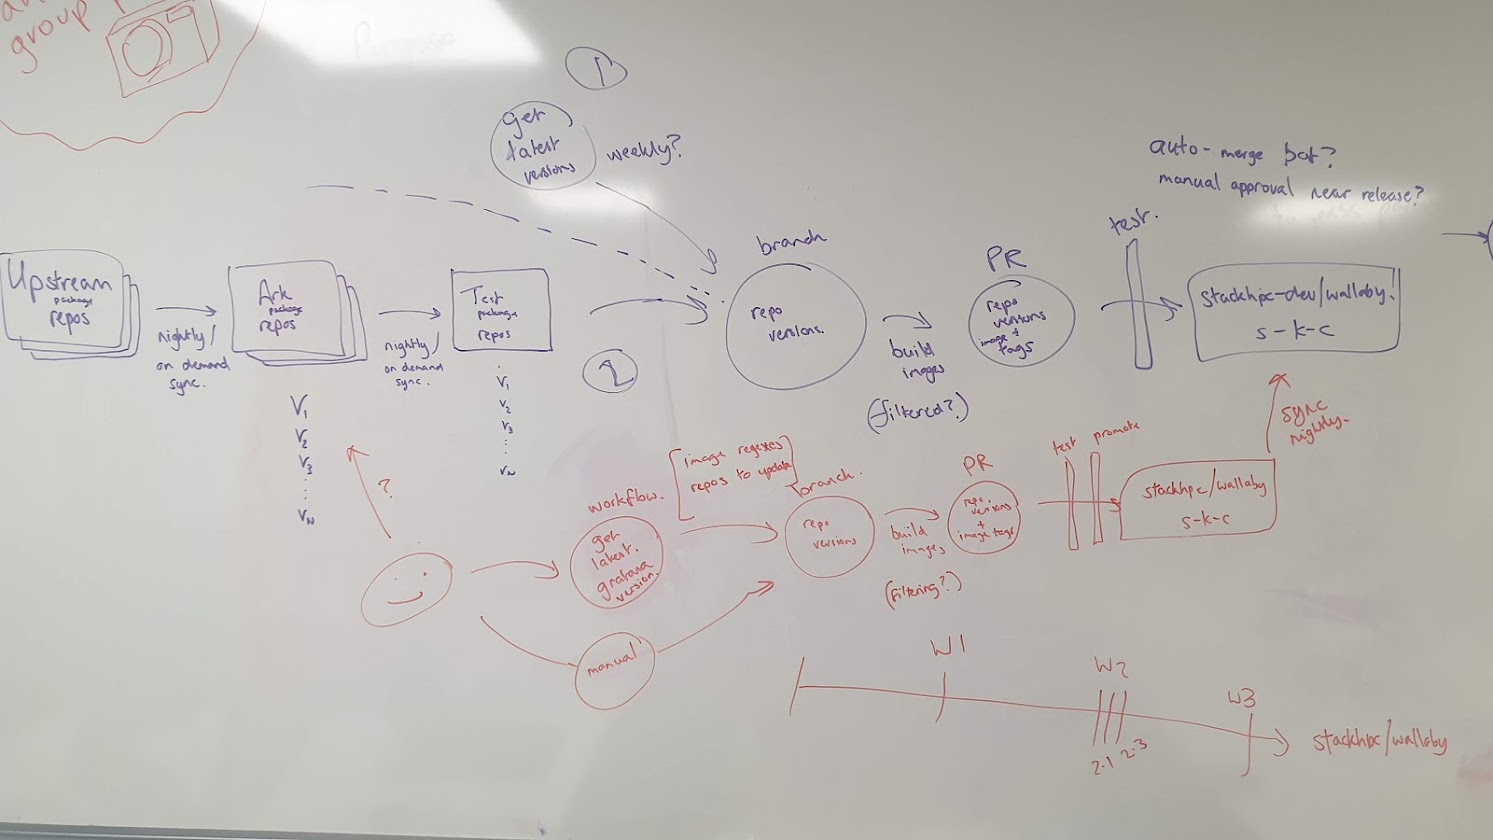 group
1
get
latest
versions
weekly?
auto-merge bot?
manual approval near release?
Upstream
package
repos
nightly/
on demand
sync.
Ark
package
repos
V1
V2
V3
VN
nightly/
on demand
sync.
Test
package
repos
V1
V2
V3
VN
2
branch
repo
versions.
build
images
(filtered?)
PR
repo
versions
+
image
tags
test.
stackhpc-dev/wallaby!
s-k-c
sync
nightly.
?
workflow.
get
latest.
grafana
version.
manual
image regexes
repos to update
branch.
repo
versions
build
images
(filtering?)
PR
repo
versions
+
image tags
test
promote
stackhpc/wallaby
s-k-c
W1
W2
2.1
2.3
W3
stackhpc/wallaby